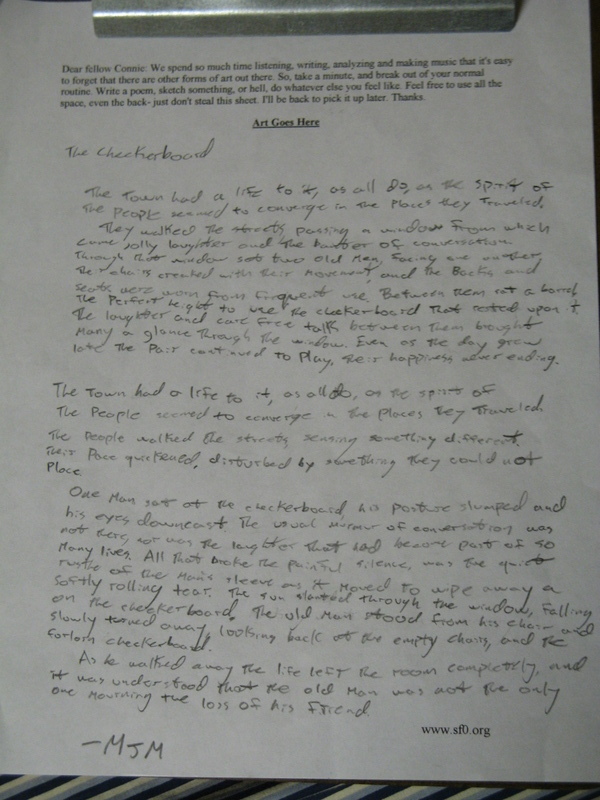 Dear fellow Connie: We spend so much time listening, writing, analyzing and making music that it's easy
to forget that there are other forms of art out there. So, take a minute, and break out of your normal
routine. Write a poem, sketch something, or hell, do whatever else you feel like. Feel free to use all the
space, even the back- just don't steal this sheet. I'll be back to pick it up later. Thanks.
Art Goes Here
The Checkerboard
The Town had a life to it, as all do, as the spirit of
the people seemed to converge in the Places they Traveled.
They walked the streets passing a window from which
came jolly laughter and the banter of conversation.
Through that window sat two old Men, facing one another,
their chairs creaked with their movement, and the Backs and
seats were worn from frequent use. Between them sat a barrel,
the Perfect height to use the checkerboard that rested upon it.
The laughter and care free talk between them brought
Many a glance through the window. Even as the day grew
late the Pair continued to Play, their happiness never ending.
The Town had a life to it, as all do, as the spirit of
The People seemed to converge in the Places they Traveled.
The People walked the streets sensing something different.
Their Pace quickened, disturbed by something they could not
Place.
One Man sat at the checkerboard, his posture slumped and
his eyes downcast. The usual murmur of conversation was
not there, nor was the laughter that had become part of so
Many lives. All that broke the painful silence, was the quiet
rustle of the Man's sleeve as it moved to wipe away a
softly rolling tear. The sun slanted through the window, falling
on the checkerboard. The old Man stood from his chair and
slowly turned away, looking back at the empty chair, and the
forlorn checkerboard.
As he walked away the life left the room completely, and
it was understood that the old Man was not the only
one Mourning the loss of his friend.
www.sf0.org
-MJM